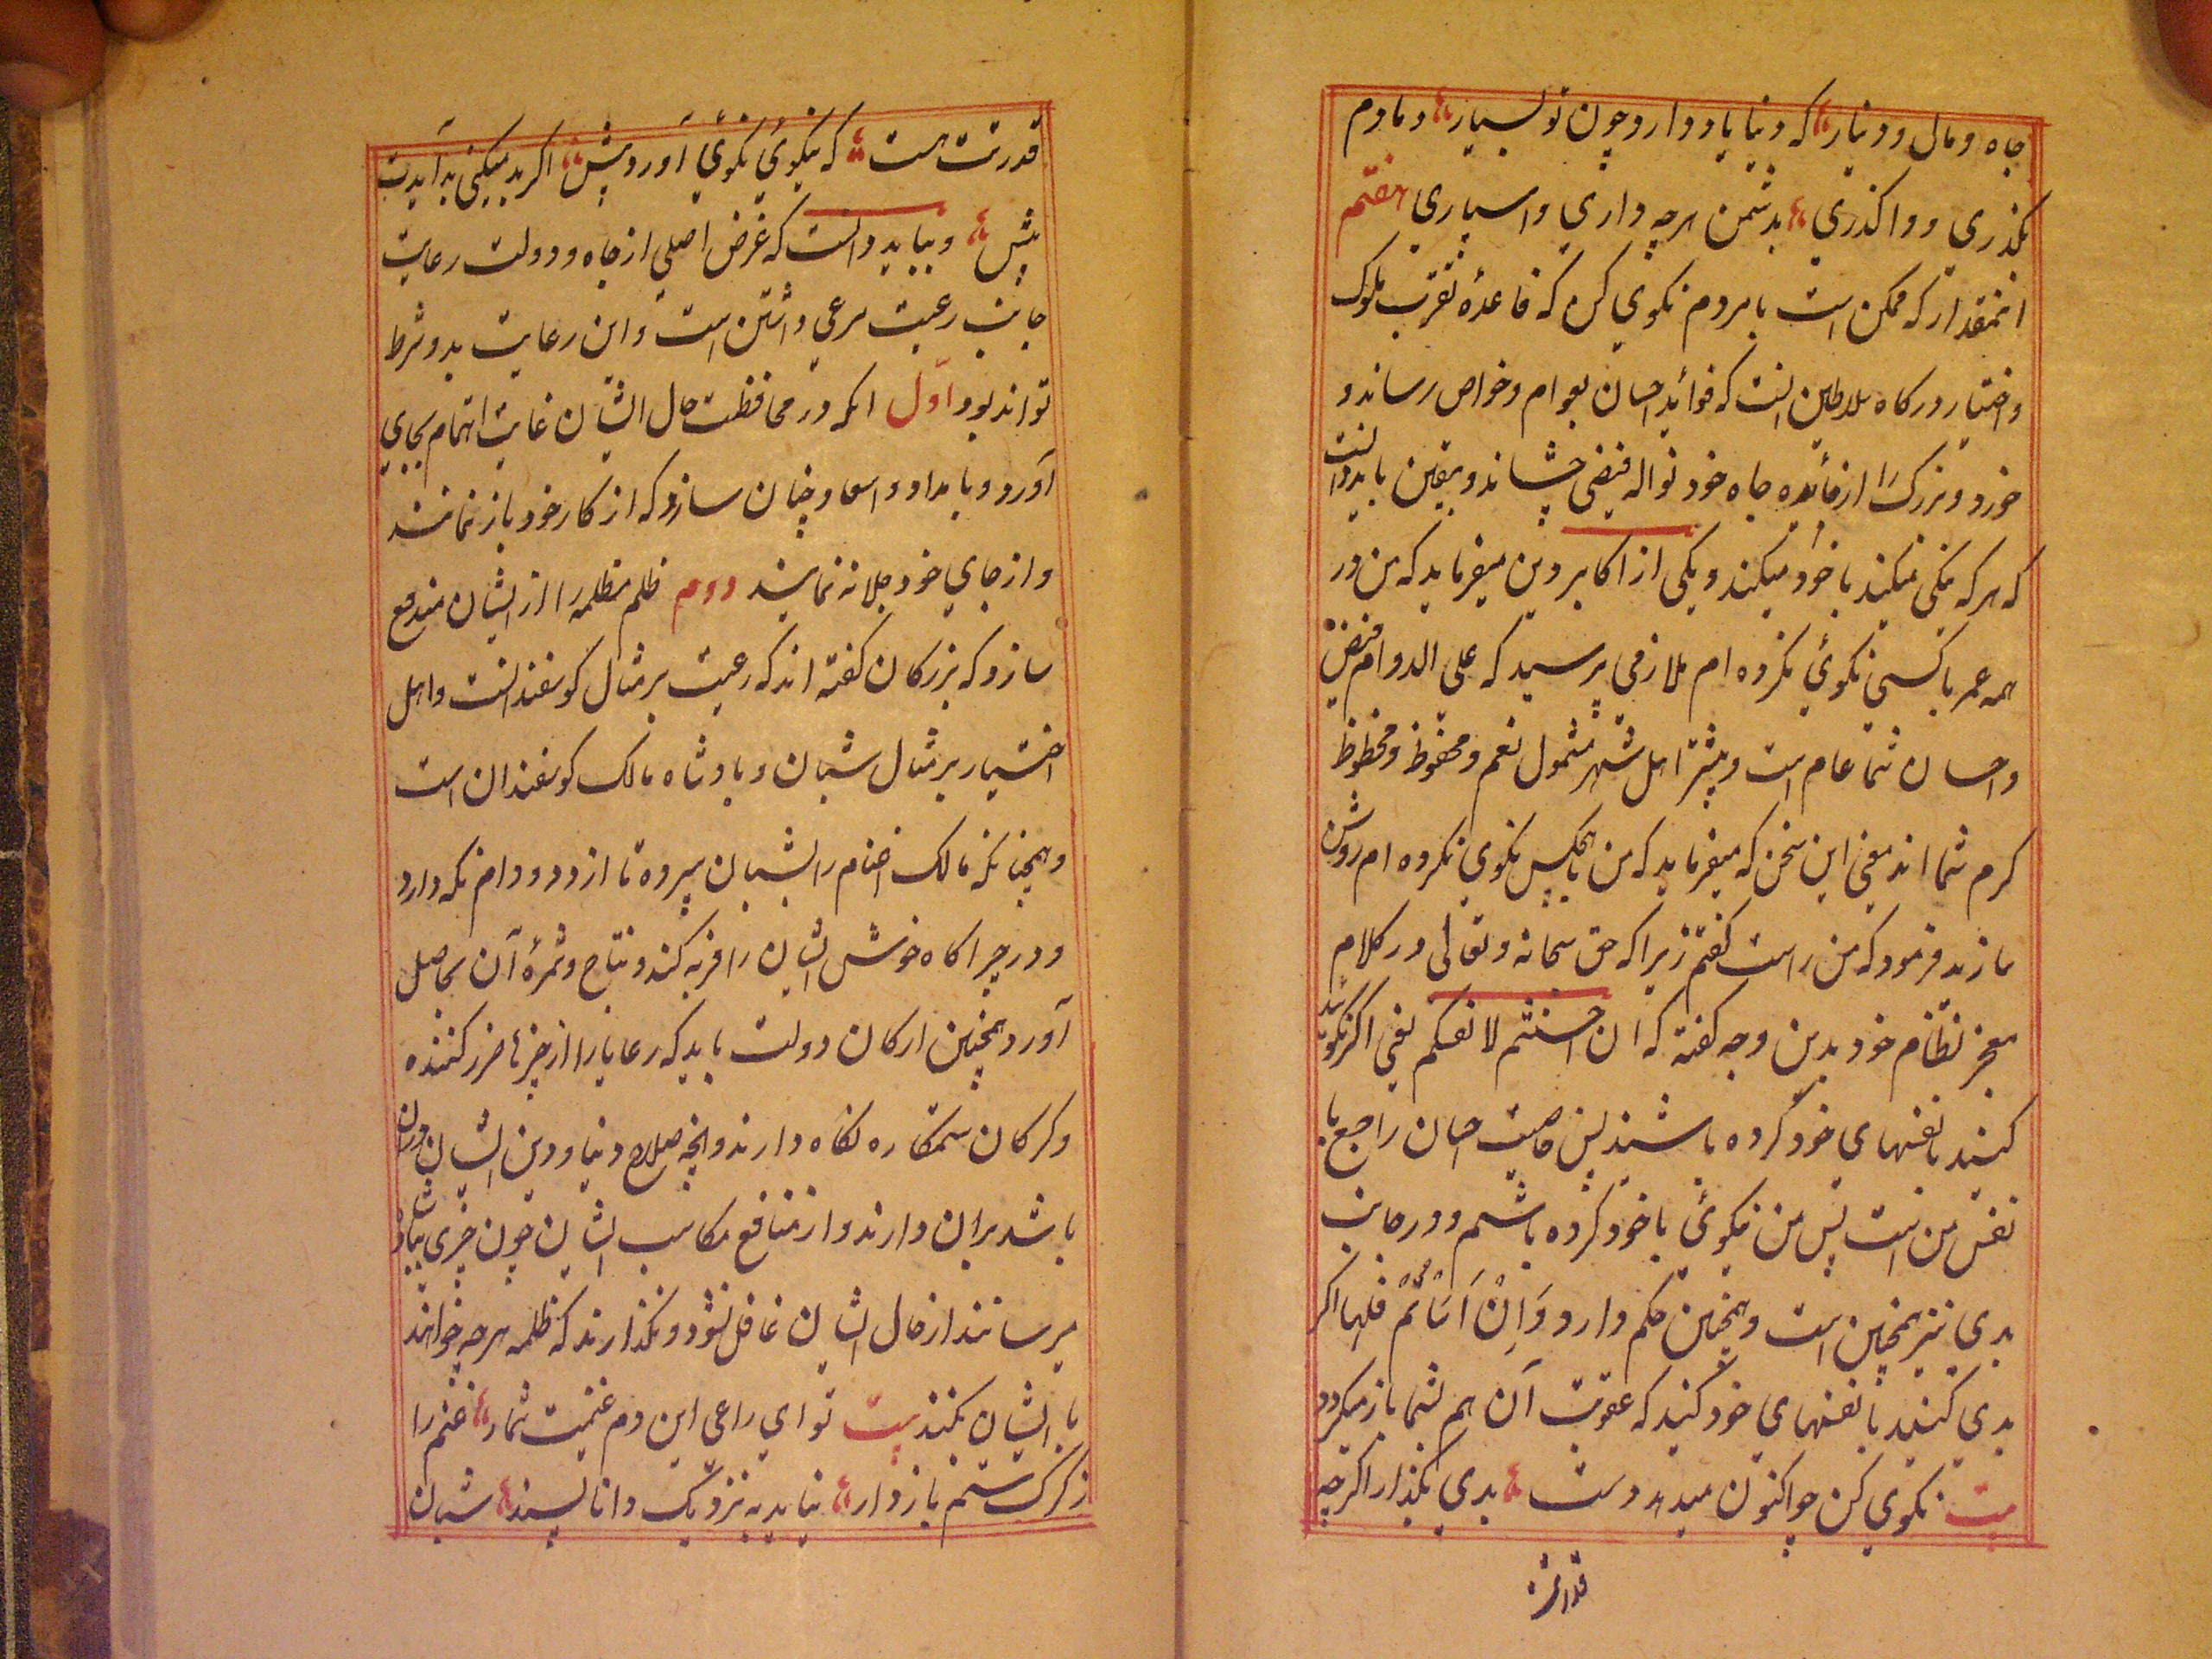 جاه و مال و دینار؛ که دنیا یاد دارد چون تو بسیار؛ دمادم
بگذری و واگذری؛ بدشمن هرچه داری واسپاری هفتم
آنمقدار که ممکن است بامردم نکوی کن که قاعدهٔ تقرب ملوک
و اختیار درکاه سلاطین آنست که فوائد احسان بعوام و خواص رساند و
خورد و بزرک را از مائده جاه خود نواله فیضی چشاند و یقین باید دانست
که هرکه نیکی میکند باخود میکند و یکی از اکابر دین میفرماید که من در
همه عمر باکسی نکوئی نکرده ام ملازمی پرسید که علی الدوام فیض
و احسان شما عام است و بیشتر اهل شهر مشمول نعم و محفوظ و محظوظ
کرم شما اند معنی این سخن که میفرماید که من باهیچکس نکوی نکرده ام روشن
سازند فرمود که من راست کفتم زیراکه حق سبحانه و تعالی در کلام
معجز نظام خود بدین وجه کفته که ان احسنتم لانفسکم یعنی اکر نکوئید
کنید بانفسهای خود کرده باشند پس خاصیت احسان راجع با
نفس من است پس من نیکوئی باخود کرده باشم و در جانب
بدی نیز همچنین است و همچنین حکم دارد وَاِنْ اَسَاْتُمْ فلها اکر
بدی کنید بانفسهای خود کنید که عقوبت آن هم بشما باز میکردد
بیت نکوی کن چو اکنون میدهد دست؛ بدی بکذار اکرچه
قدرتت
قدرتت هست؛ که نیکوئی نکوئی آورد پیش؛ اکر بد میکنی بد آیدت
پیش؛ و بباید دانست که غرض اصلی از جاه و دولت رعایت
جانب رعیت مرعی داشتن است و این رعایت بدو شرط
تواند بود اوّل آنکه در محافظت حال ایشان غایت اهتمام بجای
آورد و بامداد و اسعاد چنان سازد که از کار خود باز نمانند
و از جای خود جلا نه نمایند دوم ظلم مظلمه را از ایشان مندفع
سازد که بزرکان کفته اند که رعیت بر مثال کوسفندانست و اهل
اختیار بر مثال شبان و بادشاه مالک کوسفندان است
و همچنانکه مالک اغنام را بشبان سپرده تا از دد و دام نکه دارد
و در چراکاه خوش ایشان را فربه کند و نتاج و ثمرهٔ آن بحاصل
آورد همچنین ارکان دولت باید که رعایا را از چیزها ضرر کننده
و کرکان ستمکاره نکاه دارند و آنچه صلاح دنیا و دین ایشان دران
باشد بران دارند و از منافع مکاسب ایشان چون چیزی بپادشاه
میرسانند از حال ایشان غافل نشود و نکذارند که ظلمه هرچه خواهند
با ایشان بکنند بیت تو ای راعی این دم غنیمت شمار؛ غنم را
ز کرک ستم باز دار؛ نیاید به نزدیک دانا پسند؛ شبان